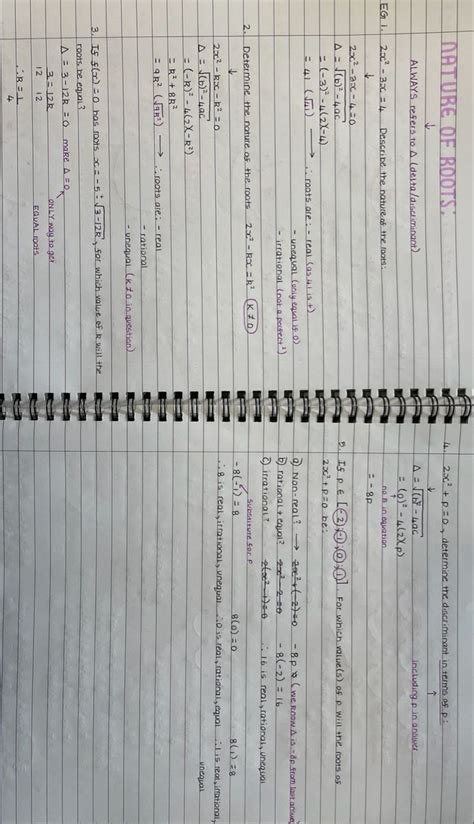 NATURE OF ROOTS:
↓
ALWAYS refers to Δ (delta/discriminant)
EG 1. 2x² - 3x = 4 Describe the nature of the roots:
↓
2x² - 3x - 4 = 0
Δ = √(b)² - 4ac
= (-3)² - 4(2)(-4)
= 41 (√41) → ∴ roots are: - real (as 41 is +)
- unequal (only equal if 0)
- irrational (not a perfect ²)
2. Determine the nature of the roots 2x² - kx = k² (k ≠ 0)
↓
2x² - kx - k² = 0
Δ = √(b)² - 4ac
= (-k)² - 4(2)(-k²)
= k² + 8k²
= 9k² (√9k²) → ∴ roots are: - real
- rational
- unequal (k ≠ 0 in question)
3. If f(x) = 0 has roots x = -5 ± √3 - 12k, for which value of k will the
roots be equal?
Δ = 3 - 12k = 0 make Δ = 0
3 = 12k ONLY way to get
12 12 EQUAL roots
∴ k = 1/4
4. 2x² + p = 0, determine the discriminant in terms of p:
↓
Δ = √(b)² - 4ac including p in answer
= (0)² - 4(2)(p)
no b in equation
= -8p
5. If p ∈ [-2; -1; 0; 1]. For which value(s) of p will the roots of
2x² + p = 0 be:
a) Non-real? → 2x² + (-2) = 0 -8p (we know Δ is -8p from last answer)
b) rational + equal? 2x² - 2 = 0 -8(-2) = 16
c) irrational? 2(x² - 1) = 0 ∴ 16 is real, rational, unequal
substitute for p
-8(-1) = 8 8(0) = 0 8(1) = 8
∴ 8 is real, irrational, unequal ∴ 0 is real, rational, equal ∴ 1 is real, irrational,
unequal